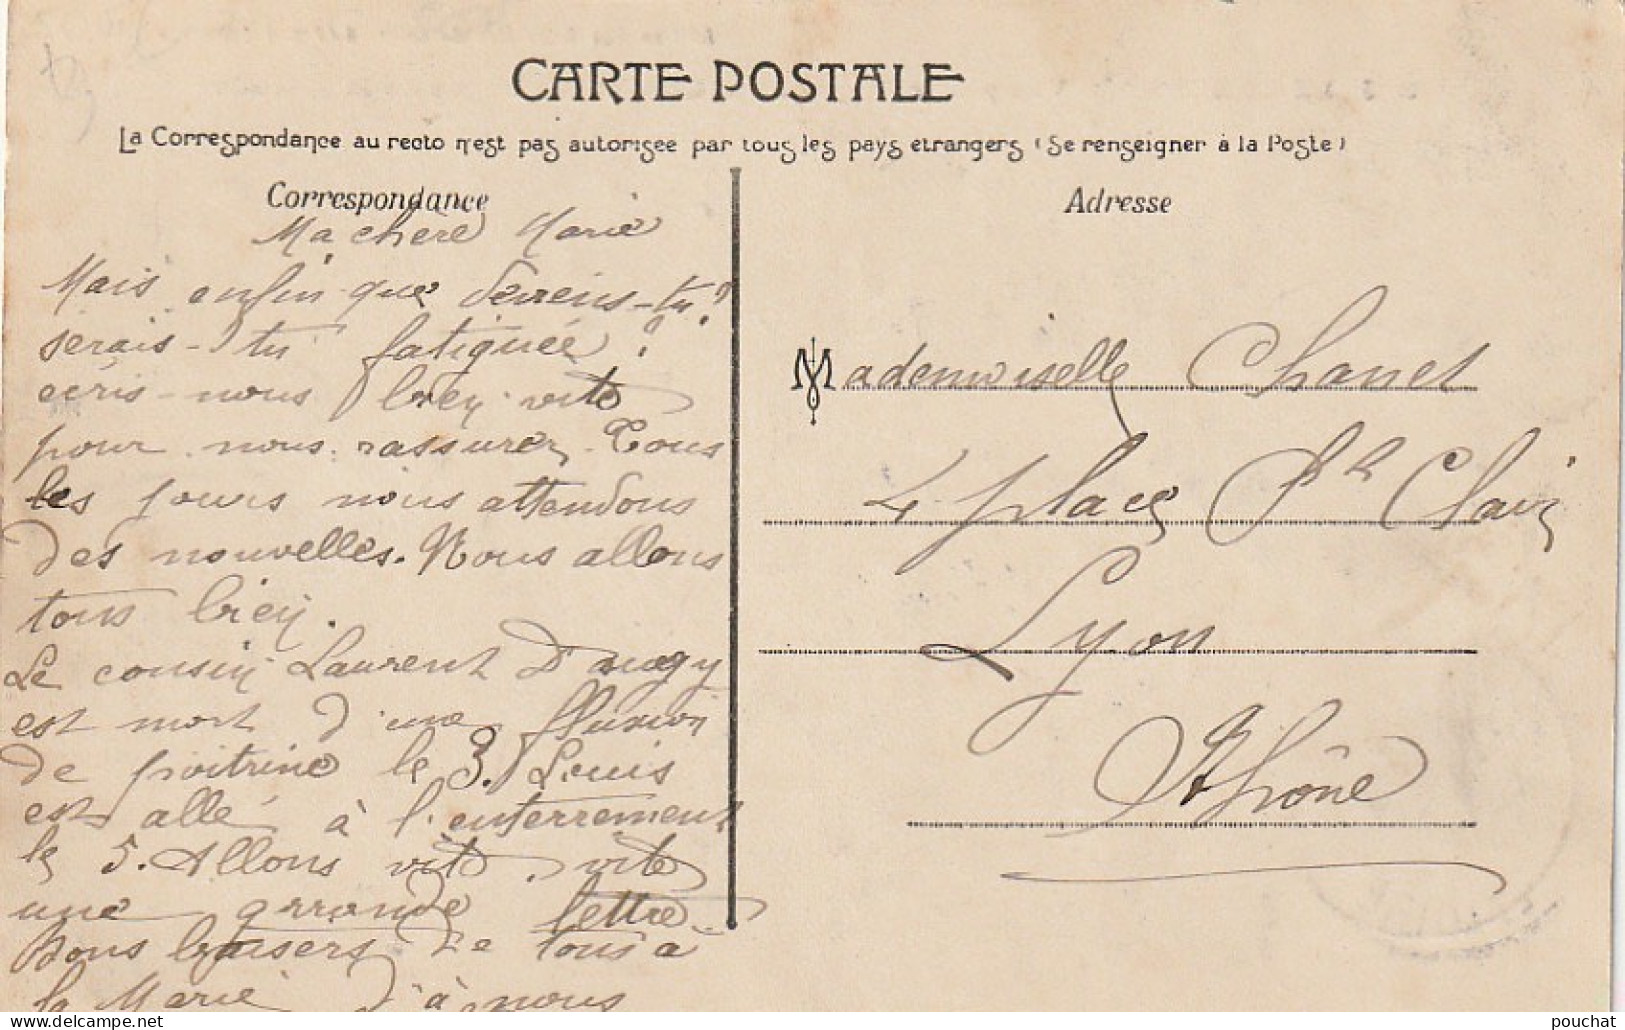 CARTE POSTALE
La Correspondance au recto n'est pas autorisée par tous les pays étrangers (Se renseigner à la Poste)
Correspondance
Ma chere Marie
Mais enfin que deviens-tu?
serais-tu fatiguée?
écris-nous bien vite
pour nous rassurer. Tous
les jours nous attendons
des nouvelles. Nous allons
tous bien.
Le cousin Laurent
est mort d'une fluxion
de poitrine le 3. Louis
est allé à l'enterrement
le 5. Allons vite, vite
une grrrande lettre.
Bons baisers de tous à
la Marie d'à nous
Adresse
Mademoiselle Chanel
4 place St Clair
Lyon
Rhône
pouchat